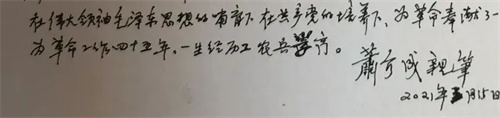 在伟大领袖毛泽东思想的哺育下在共产党的培养下,为革命奉献了一
为革命工作四十五年,一生经历工农兵学商。
萧方成親筆
2021年5月15日